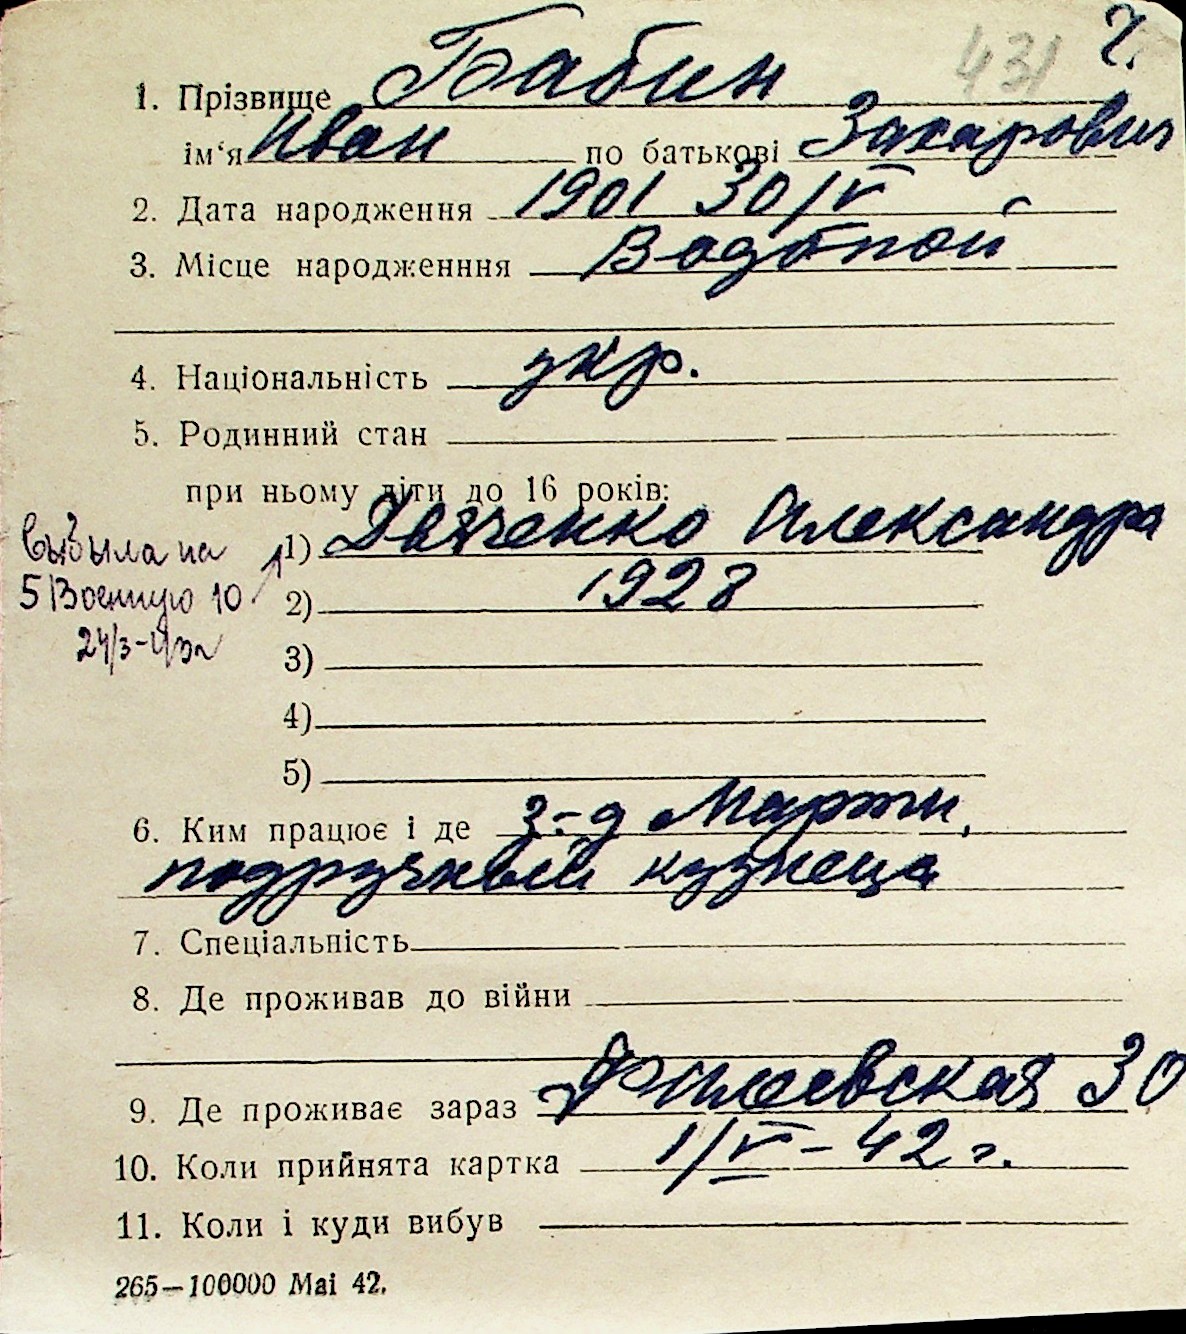 431 Ч.
1. Прізвище Бабин
ім'я Иван по батькові Захарович
2. Дата народження 1901 30/V
3. Місце народженння Водопой
4. Національність укр.
5. Родинний стан
при ньому діти до 16 років:
1) Дьяченко Александра
выбыла на
5 Военную 10
24/3-43г
2) 1928
3)
4)
5)
6. Ким працює і де з-д Марти,
подручный кузнеца
7. Спеціальність
8. Де проживав до війни
9. Де проживає зараз Филеевская 30
10. Коли прийнята картка 1/V-42 г.
11. Коли і куди вибув
265—100000 Mai 42.